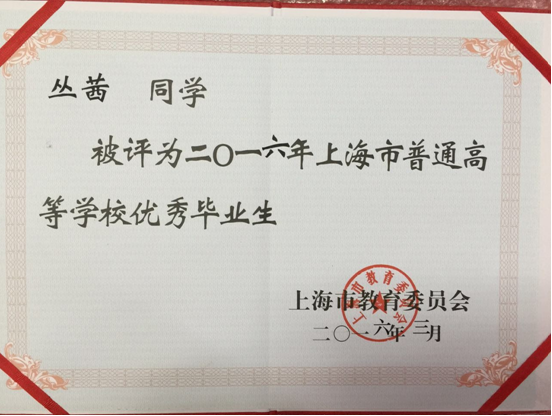 丛茜 同学
被评为二〇一六年上海市普通高
等学校优秀毕业生
上海市教育委员会
二〇一六年三月
上海市教育委员会